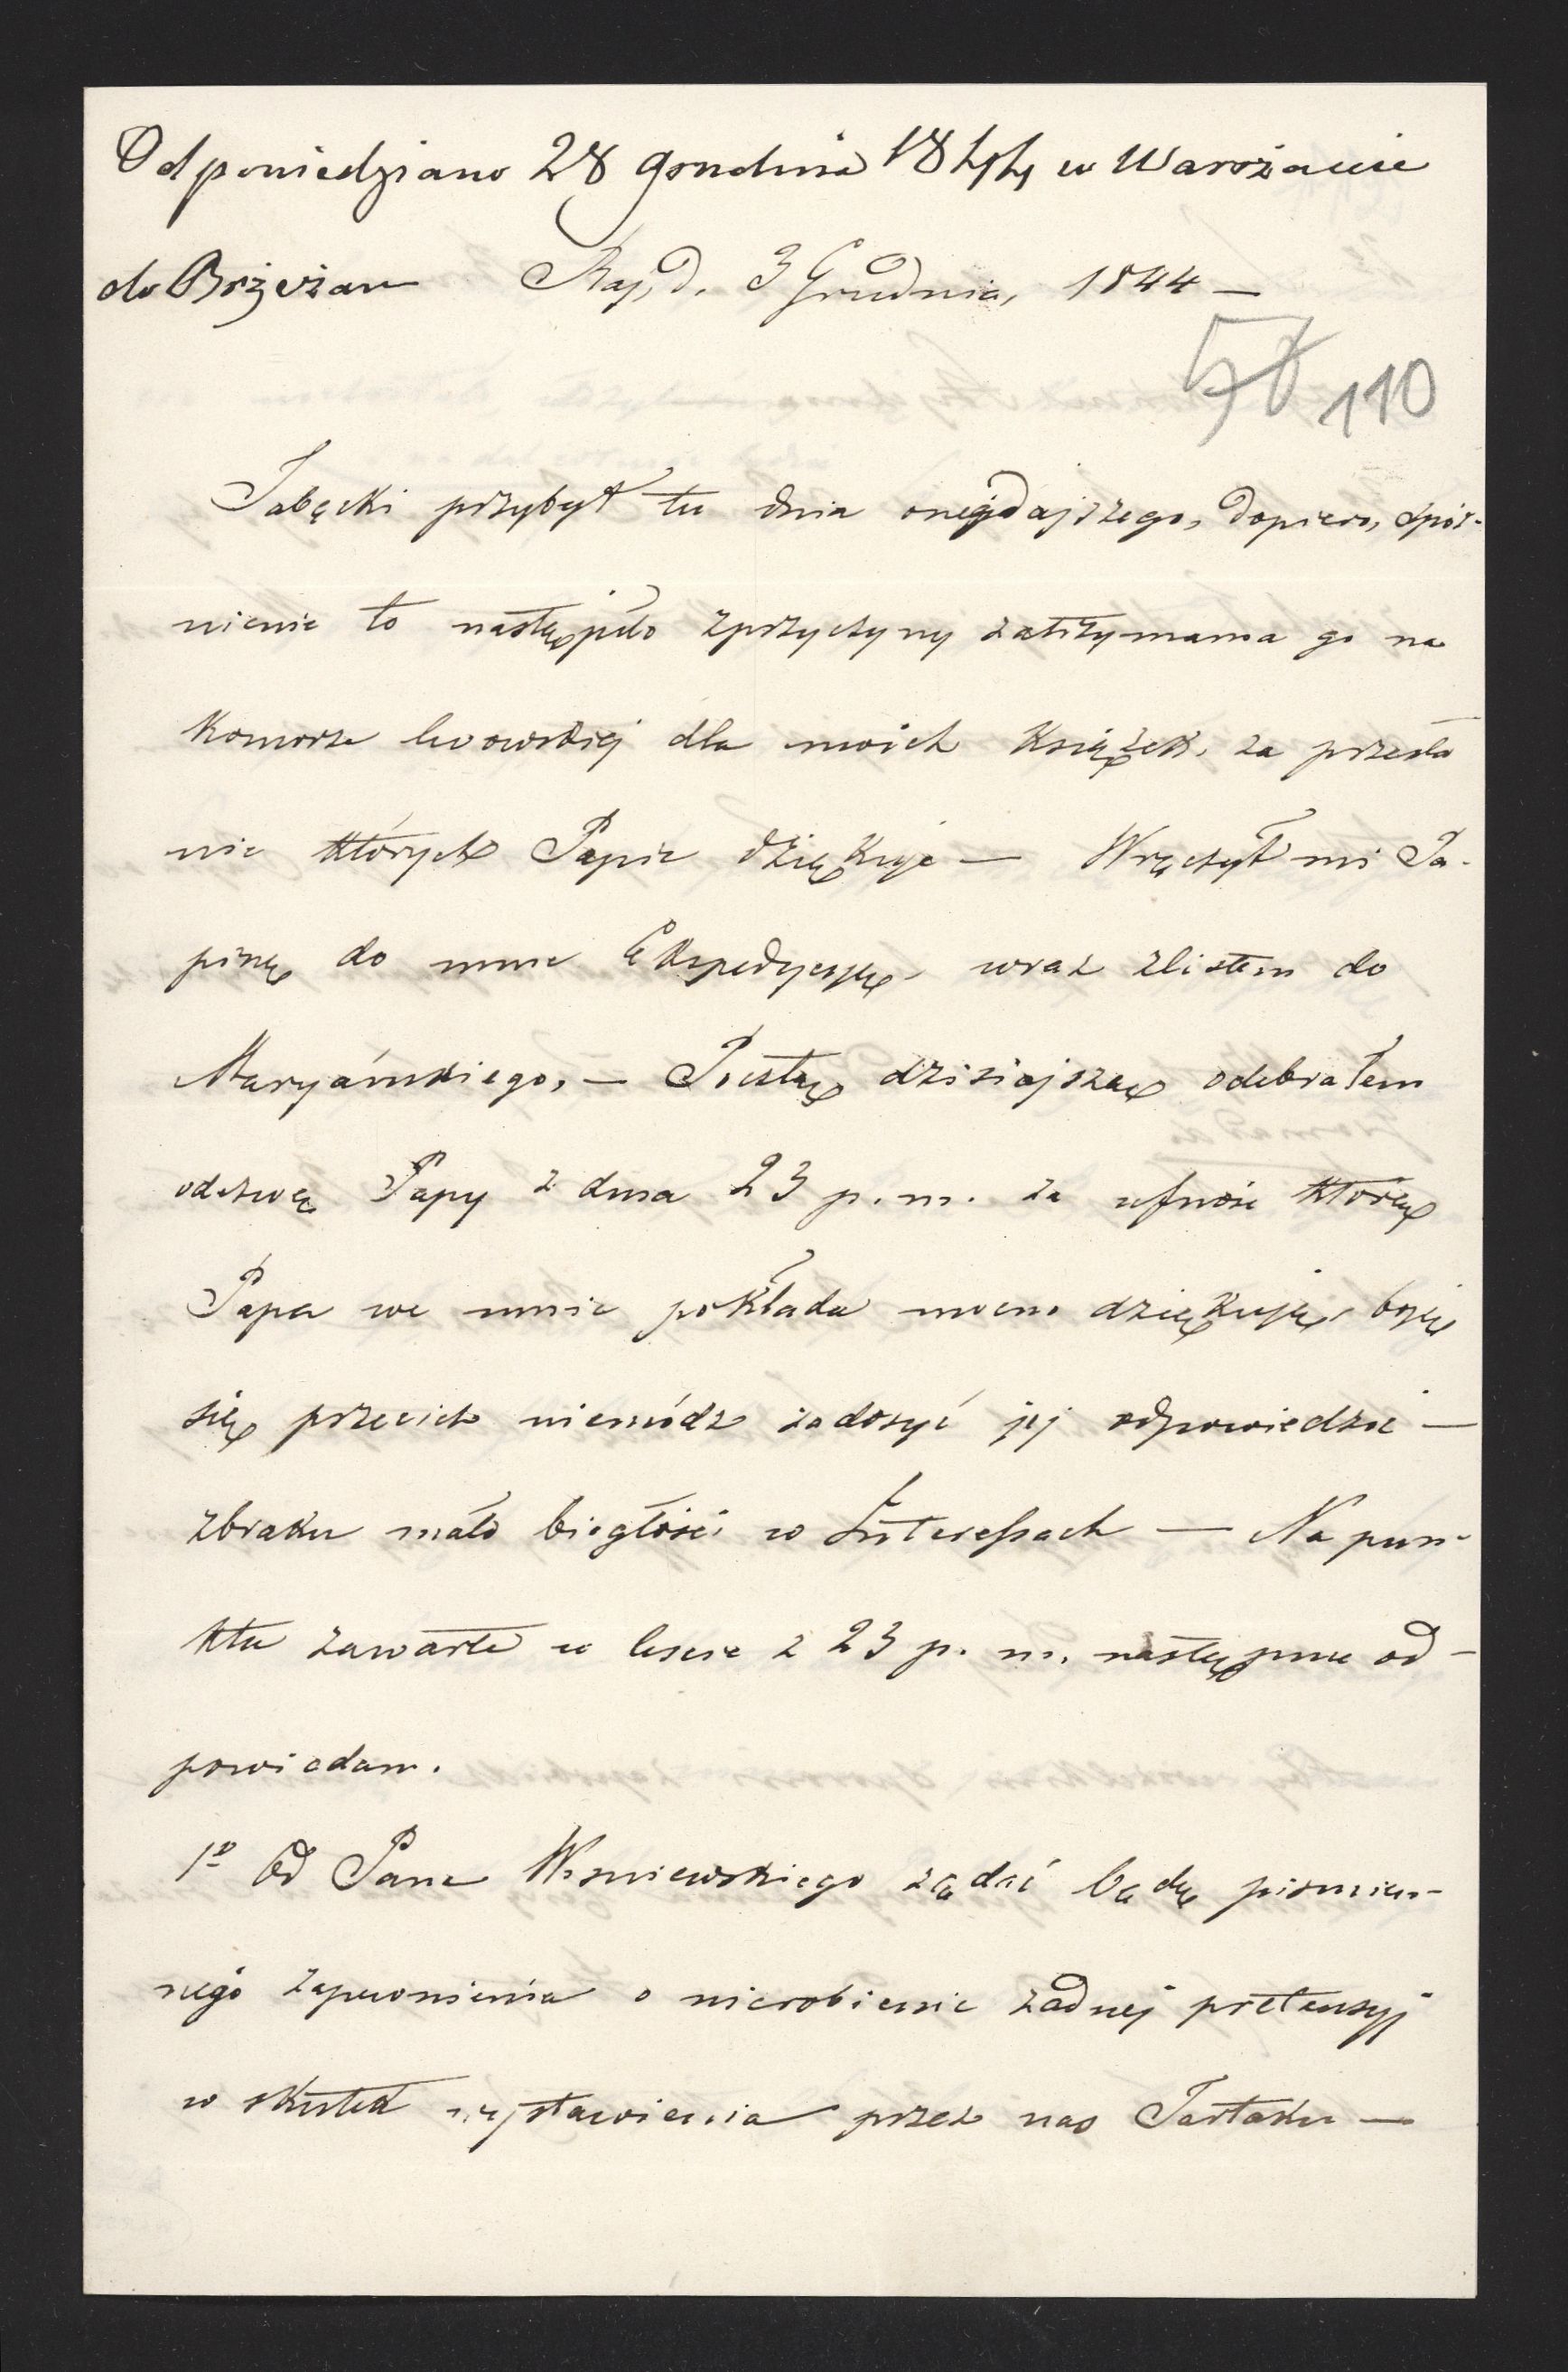 Odpowiedziano 28 grudnia 1844 w Warszawie
do Brzeżan Raj, d. 3 Grudnia, 1844 —
58 110
Jabęcki przybył tu dnia onegdajszego, dopiero, spóź-
nienie to nastąpiło zprzyczyny zatrzymania go na
Komorze lwowskiej dla moich Książek, za przesła
nie których Papie dziękuję — Wręczył mi Pa-
piną do mnie Ekspedycyją wraz zlistem do
Maryańskiego, — Pocztą dzisiajszą odebrałem
odezwę Papy z dnia 23 p. m. za ufność którą
Papa we mnie pokłada mocno dziękuję, boję
się przecież niemódz zadosyć jej odpowiedzić —
zbraku mało biegłości w Interessach — Na pun-
kta zawarte w liście z 23 p. m. następnie od-
powiadam.
1º Od Pana Wiśniewskiego żądać będę pismien-
nego zapewnienia o nierobienie żadnej pretensyj
w skutek wystawienia przez nas Tartaku —